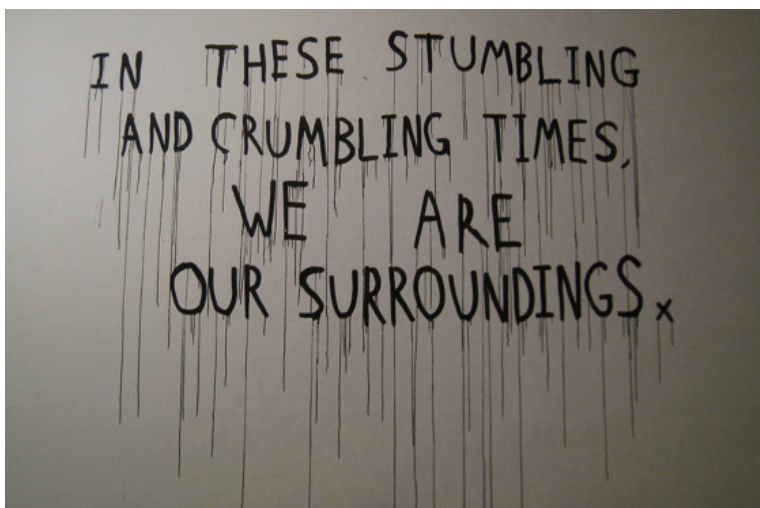 IN THESE STUMBLING
AND CRUMBLING TIMES,
WE ARE
OUR SURROUNDINGS.x